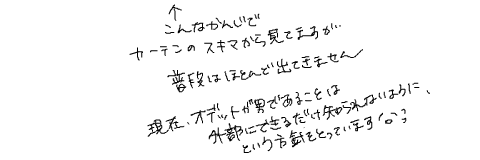 ↑
こんなかんじで
カーテンのスキマから見てますが…
普段はほとんど出てきません
現在、オデットが男であることは
外部にできるだけ知られないように、
という方針をとっています'ω'